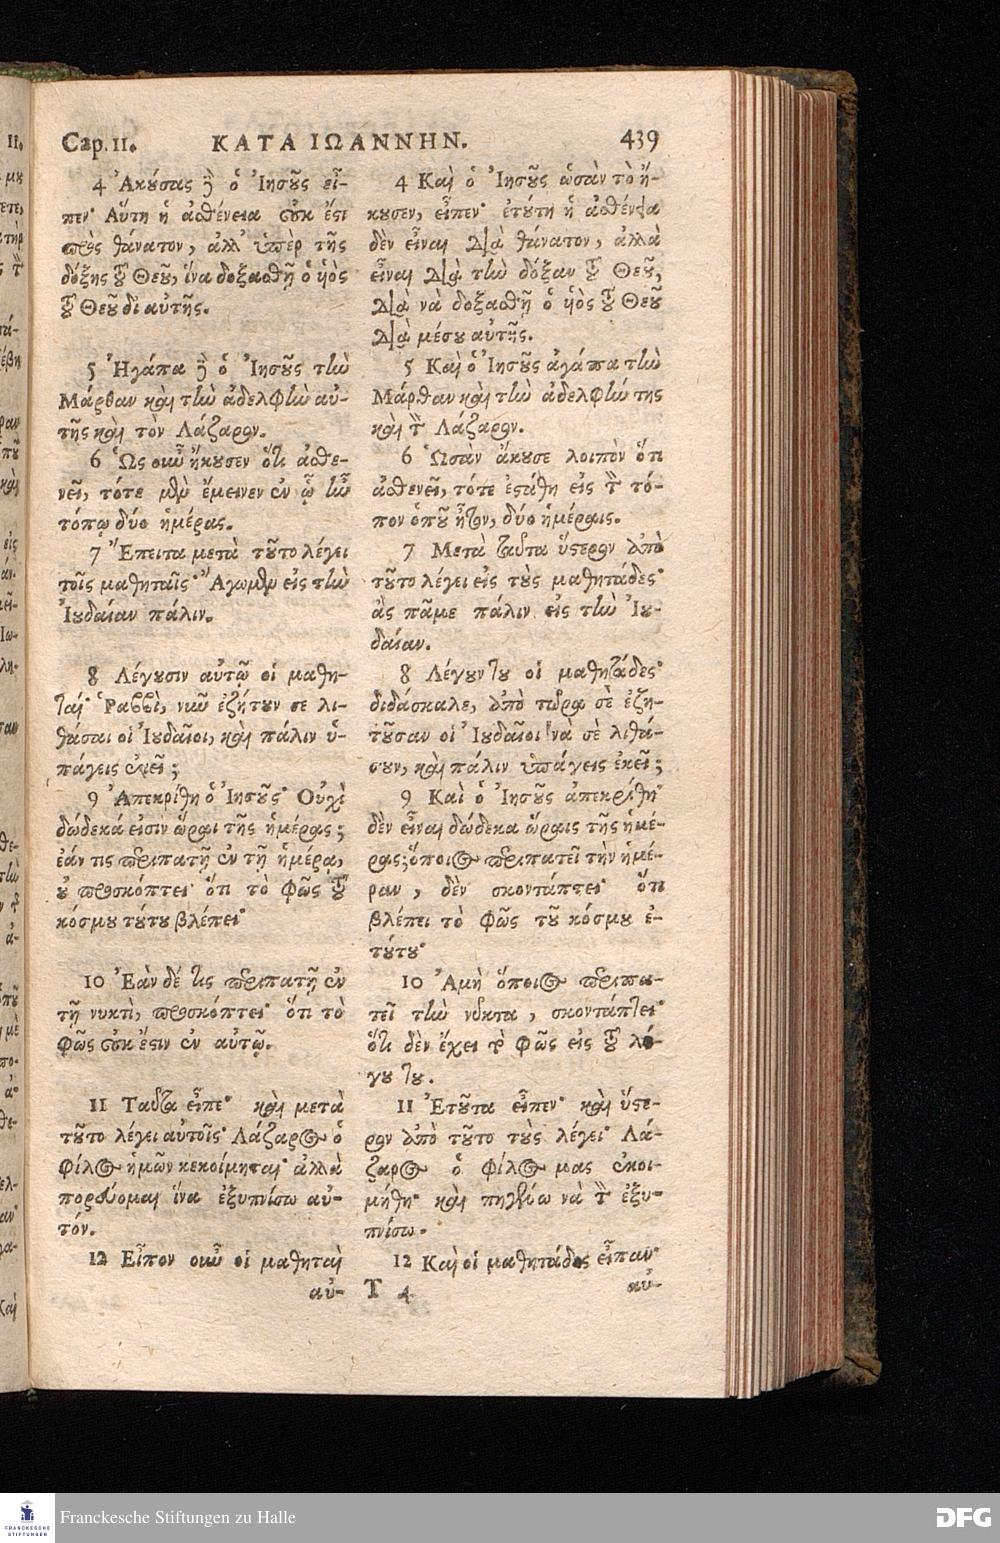 Cap. 11. ΚΑΤΑ ΙΩΑΝΝΗΝ. 439
4 Ἀκούσας δὲ ὁ Ἰησοῦς εἶ-
πεν· Αὕτη ἡ ἀσθένεια οὐκ ἔστι
πρὸς θάνατον, ἀλλ' ὑπὲρ τῆς
δόξης τοῦ Θεοῦ, ἵνα δοξασθῇ ὁ υἱὸς
τοῦ Θεοῦ δι αὐτῆς.
5 Ἠγάπα δὲ ὁ Ἰησοῦς τὴν
Μάρθαν καὶ τὴν ἀδελφὴν αὐ-
τῆς καὶ τὸν Λάζαρον.
6 Ὡς οὖν ἤκουσεν ὅτι ἀσθε-
νεῖ, τότε μὲν ἔμεινεν ἐν ᾧ ἦν
τόπῳ δύο ἡμέρας.
7 Ἔπειτα μετὰ τοῦτο λέγει
τοῖς μαθηταῖς· Ἄγωμεν εἰς τὴν
Ἰουδαίαν πάλιν.
8 Λέγουσιν αὐτῷ οἱ μαθη-
ταί· Ῥαββὶ, νῦν ἐζήτουν σε λι-
θάσαι οἱ Ἰουδαῖοι, καὶ πάλιν ὑ-
πάγεις ἐκεῖ;
9 Ἀπεκρίθη ὁ Ἰησοῦς· Οὐχὶ
δώδεκά εἰσιν ὧραι τῆς ἡμέρας;
ἐάν τις περιπατῇ ἐν τῇ ἡμέρα,
οὐ προσκόπτει· ὅτι τὸ φῶς τοῦ
κόσμου τούτου βλέπει·
10 Ἐὰν δέ τις περιπατῇ ἐν
τῇ νυκτὶ, προσκόπτει· ὅτι τὸ
φῶς οὐκ ἔστιν ἐν αὐτῷ.
11 Ταῦτα εἶπε· καὶ μετὰ
τοῦτο λέγει αὐτοῖς· Λάζαρος ὁ
φίλος ἡμῶν κεκοίμηται· ἀλλὰ
πορεύομαι ἵνα ἐξυπνίσω αὐ-
τόν.
12 Εἶπον οὖν οἱ μαθηταὶ
αὐ-
4 Καὶ ὁ Ἰησοῦς ὡσὰν τὸ ἤ-
κουσεν, εἶπεν· ἐτούτη ἡ ἀσθένεια
δὲν εἶναι διὰ θάνατον, ἀλλὰ
εἶναι διὰ τὴν δόξαν τοῦ Θεοῦ,
διὰ νὰ δοξασθῇ ὁ υἱὸς τοῦ Θεοῦ
διὰ μέσου αὐτῆς.
5 Καὶ ὁ Ἰησοῦς ἀγάπα τὴν
Μάρθαν καὶ τὴν ἀδελφήν της
καὶ τὸν Λάζαρον.
6 Ὡσὰν ἄκουσε λοιπὸν ὅτι
ἀσθενεῖ, τότε ἐστάθη εἰς τὸν τό-
πον ὁποῦ ἦτον, δύο ἡμέραις.
7 Μετὰ ταῦτα ὕστερον ἀπὸ
τοῦτο λέγει εἰς τοὺς μαθητάδες·
ἂς πᾶμε πάλιν εἰς τὴν Ἰου-
δαίαν.
8 Λέγουν του οἱ μαθητάδες·
διδάσκαλε, ἀπὸ τώρα σὲ ἐζη-
τοῦσαν οἱ Ἰουδαῖοι νὰ σὲ λιθά-
σουν, καὶ πάλιν ὑπάγεις ἐκεῖ;
9 Καὶ ὁ Ἰησοῦς ἀπεκρίθη·
δὲν εἶναι δώδεκα ὥραις τῆς ἡμέ-
ρας; ὅποιος περιπατεῖ τὴν ἡμέ-
ραν, δὲν σκοντάπτει· ὅτι
βλέπει τὸ φῶς τοῦ κόσμου ἐ-
τούτου·
10 Ἀμὴ ὅποιος περιπα-
τεῖ τὴν νύκτα, σκοντάπτει·
ὅτι δὲν ἔχει τὸ φῶς εἰς τοῦ λό-
γου του.
11 Ἐτοῦτα εἶπεν· καὶ ὕστε-
ρον ἀπὸ τοῦτο τοὺς λέγει· Λά-
ζαρος ὁ φίλος μας ἐκοι-
μήθη· καὶ πηγαίνω νὰ τὸν ἐξυ-
πνίσω.
12 Καὶ οἱ μαθητάδες εἶπαν·
αὐ-
T 4
Franckesche Stiftungen zu Halle
FRANCKESCHE
STIFTUNGEN
DFG